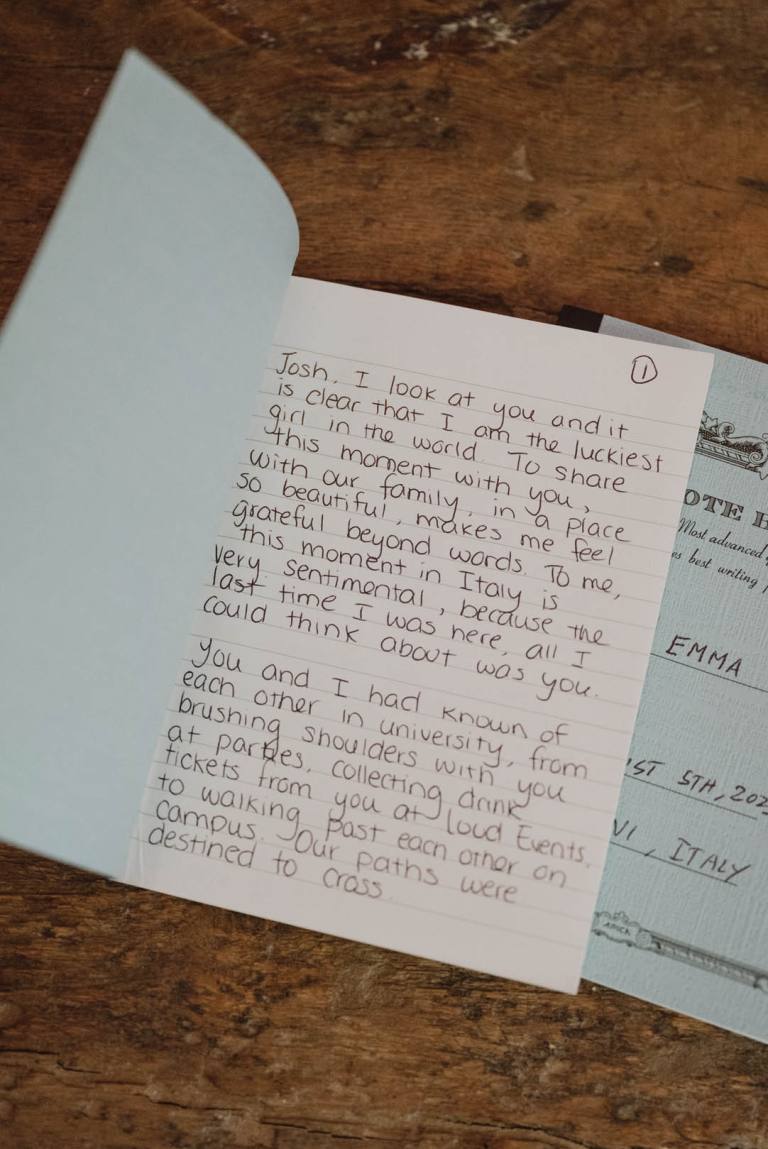 1
Josh, I look at you and it
is clear that I am the luckiest
girl in the world. To share
this moment with you,
with our family, in a place
so beautiful, makes me feel
grateful beyond words. To me,
this moment in Italy is
very sentimental, because the
last time I was here, all I
could think about was you.
You and I had known of
each other in university, from
brushing shoulders with you
at parties, collecting drink
tickets from you at loud Events,
to walking past each other on
campus. Our paths were
destined to cross.
OTE
Most advanced
best writing
EMMA
ST 5TH, 202
VI, ITALY
APICA